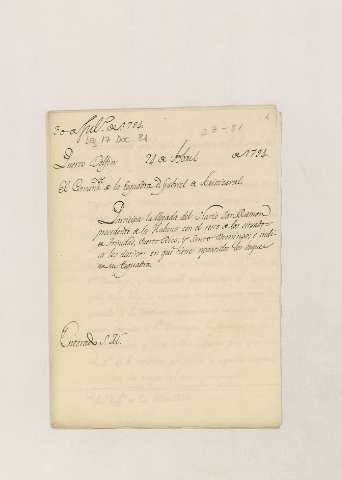 30 de Jul.º de 1794
Leg 17 Doc 84
23-81
Puerto Delfin 24 de Abril de 1794
El Comand.te de la Esquadra D. Gabriel de Aristizabal
Participa la llegada del Navio San Ramon
procedente de la Habana con el resto de los
a Trinidad, Puerto Rico, y Santo Domingo, e indi-
ca los destinos en qué tiene repartidos los buques
de su Esquadra.
Enterado S. M.